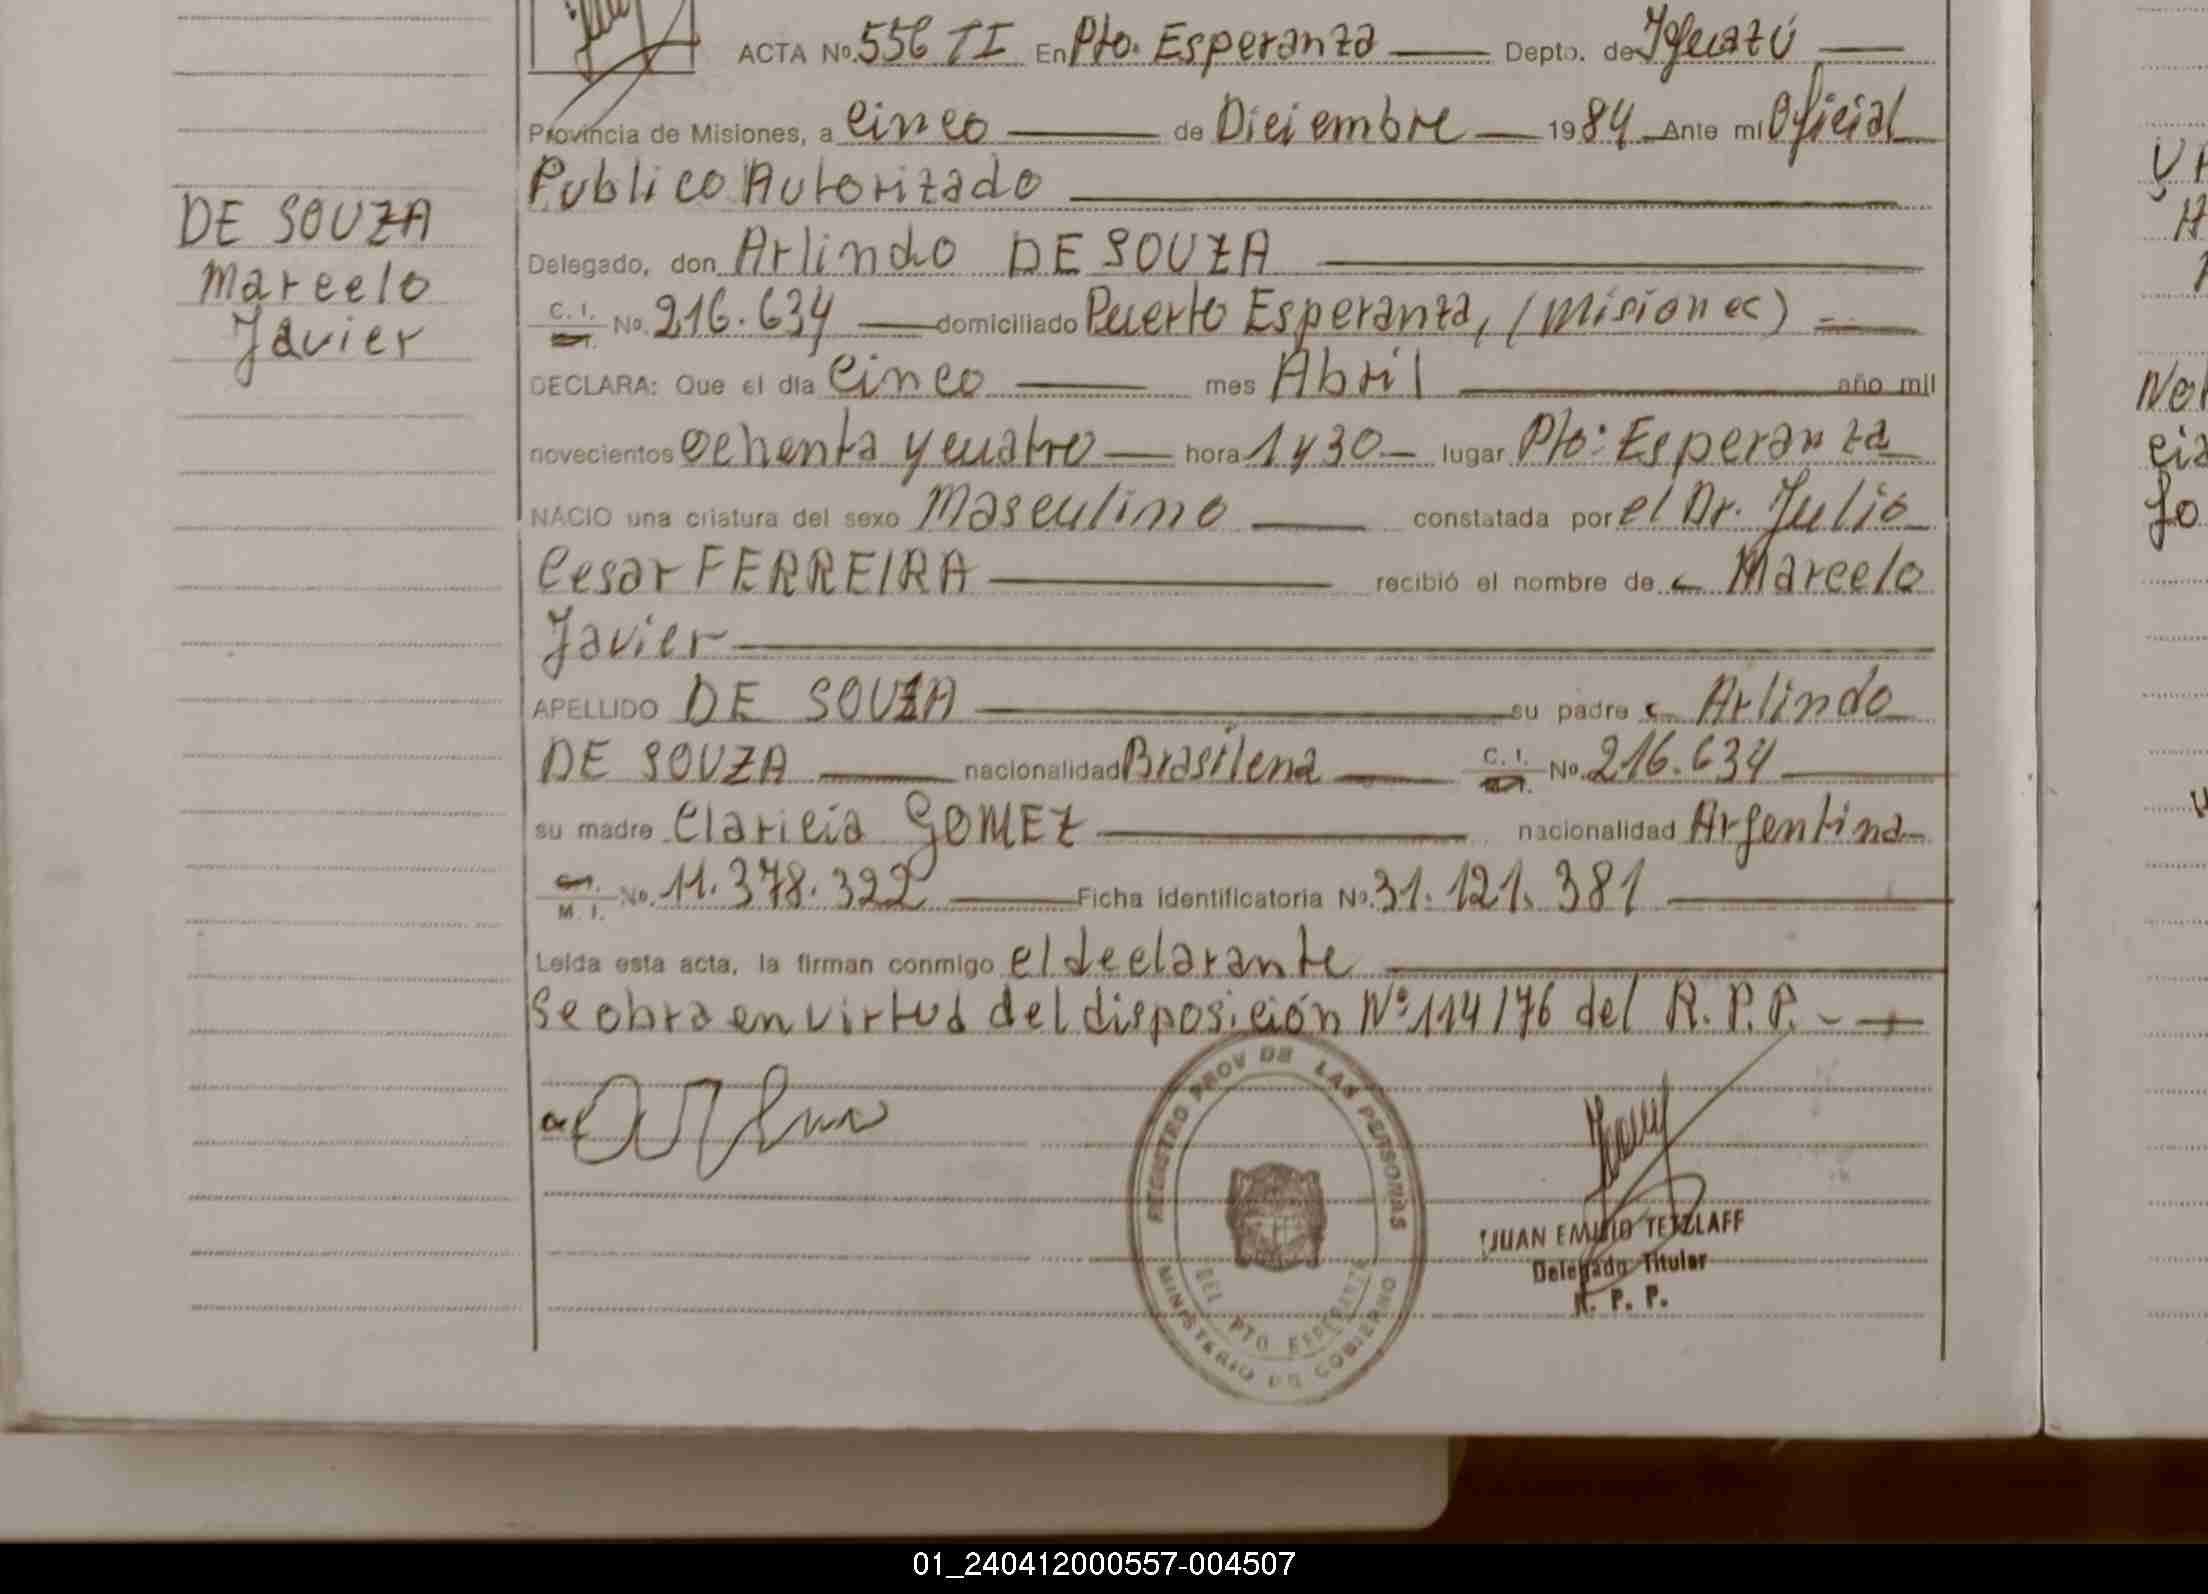 ACTA No. 556 TI En Pto. Esperanza Depto. de Iguazú
Provincia de Misiones, a Cinco de Diciembre 1984 Ante mí Oficial
Publico Autorizado
DE SOUZA
Marcelo
Javier
Delegado, don Arlindo DE SOUZA
C. I. No. 216.634 domiciliado Puerto Esperanza, (Misiones)
DECLARA: Que el día Cinco mes Abril año mil
novecientos ochenta y cuatro hora 1 y 30 lugar Pto: Esperanza
NACIO una criatura del sexo Masculino constatada por el Dr. Julio
Cesar FERREIRA recibió el nombre de Marcelo
Javier
APELLIDO DE SOUZA su padre Arlindo
DE SOUZA nacionalidad Brasilena C. I. No. 216.634
su madre Claricia GOMEZ nacionalidad Argentina
M. I. No. 11.378.322 Ficha identificatoria No. 31.121.381
Leída esta acta, la firman conmigo el declarante
Se obra en virtud del disposición Nº 114/76 del R.P.P.
REGISTRO PROV DE LAS PERSONAS
DEL PTO ESPERANZA
MINISTERIO DE GOBIERNO
JUAN EMILIO TETZLAFF
Delegado Titular
R. P. P.
01_240412000557-004507